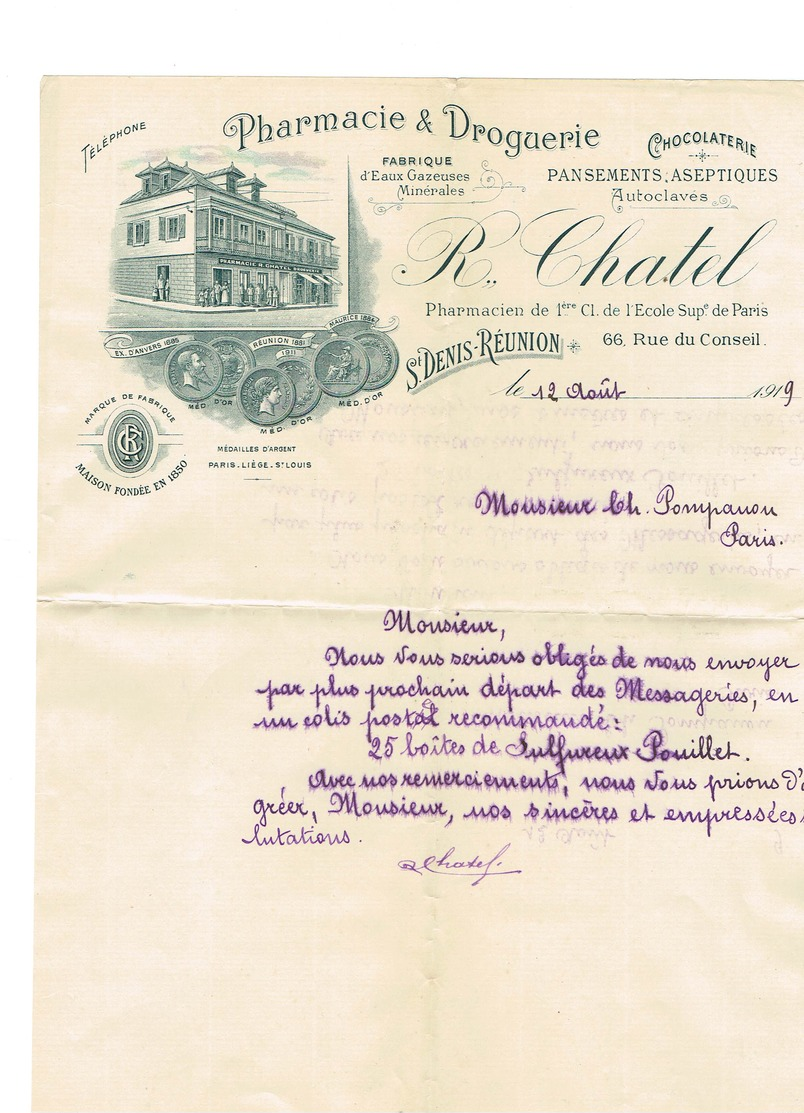 TÉLÉPHONE
Pharmacie & Droguerie
FABRIQUE
d'Eaux Gazeuses
Minérales
CHOCOLATERIE
PANSEMENTS, ASEPTIQUES
Autoclaves
R. Chatel
PHARMACIE R. CHATEL DROGUERIE
Pharmacien de 1ère Cl. de l'Ecole Supe de Paris
St DENIS-RÉUNION
66, Rue du Conseil.
EX. D'ANVERS 1885
RÉUNION 1881
1911
MAURICE 1884
MÉD. D'OR
MÉD. D'OR
MÉD. D'OR
le 12 Août 1919
MARQUE DE FABRIQUE
CR
MAISON FONDÉE EN 1850
MÉDAILLES D'ARGENT
PARIS-LIÉGE-St LOUIS
Monsieur Ch. Pompanon
Paris.
Monsieur,
Nous vous serions obligés de nous envoyer
par plus prochain départ des Messageries, en
un colis postal recommandé:
25 boîtes de Sulfureux Pouillet.
Avec nos remerciements, nous vous prions d'a
gréer, Monsieur, nos sincères et empressées
lutations.
RChatel.